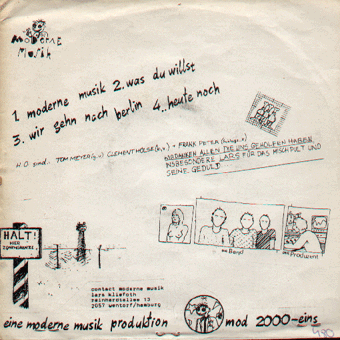 MODERNE
MUSIK
1. moderne musik 2. was du willst
3. wir gehn nach berlin 4.. heute noch
TOM MEYER
+ FRANK PETER
WIR DANKEN ALLEN DIE UNS GEHOLFEN HABEN,
INSBESONDERE LARS FÜR DAS MISCHPULT UND
SEINE GEDULD
HALT!
HIER
ZONENGRENZE
contact moderne musik
lars kliefoth
reinhardtallee 13
2057 wentorf/hamburg
eine moderne musik produktion mod 2000-eins